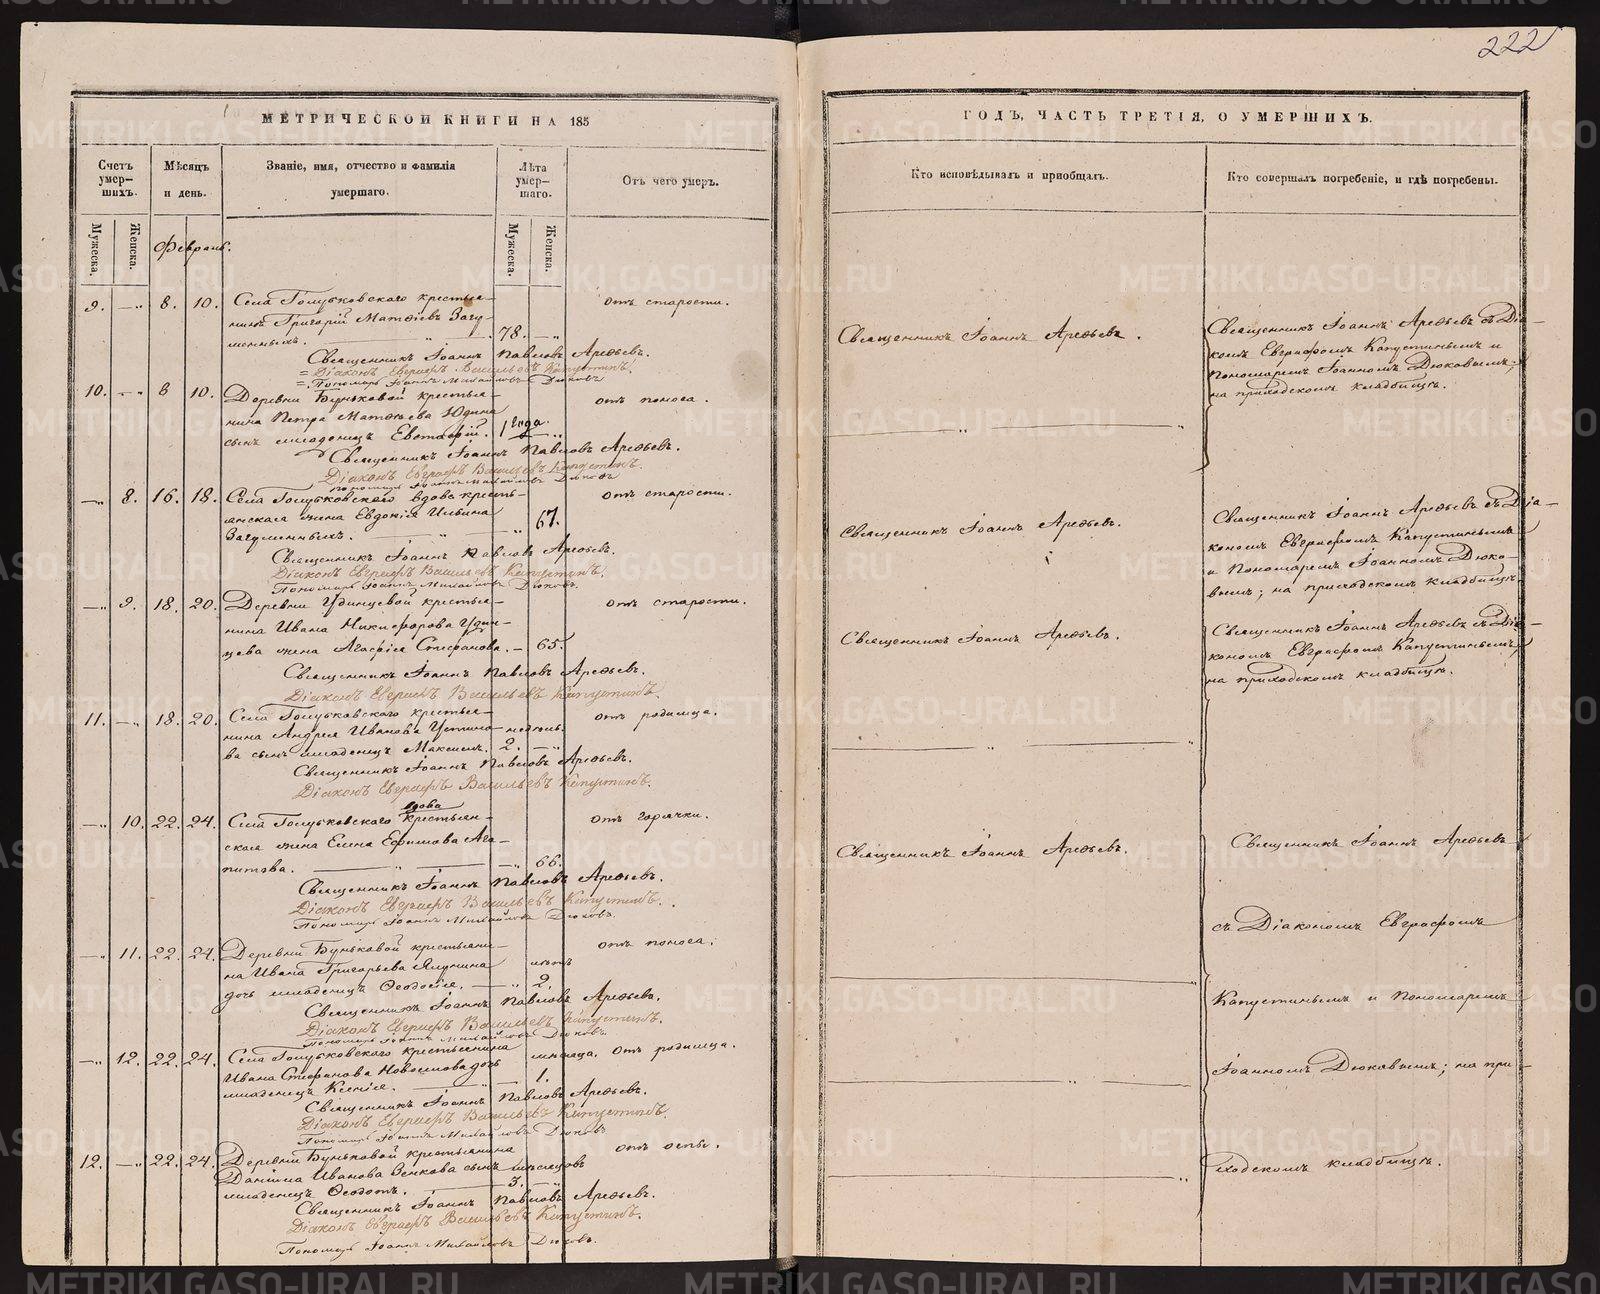 222
МЕТРИЧЕСКОЙ КНИГИ НА 185
Счетъ умер-шихъ.
Мѣсяцъ и день.
Званіе, имя, отчество и фамилія умершаго.
Лѣта умер-шаго.
Отъ чего умеръ.
Мужеска.
Женска.
Мужеска.
Женска.
Февраль.
9. — „ 8. 10. Села Голубковскаго крестья- отъ старости.
нинъ Григорій Матѳіевъ Загу-
менныхъ. 78. — „
Священникъ Іоаннъ Павловъ Арефьевъ.
Діаконъ Евграфъ Васильевъ Капустинъ.
Пономарь Іоаннъ Михайловъ Дюковъ
10. — „ 8 10. Деревни Буньковой крестья- отъ поноса.
нина Петра Матѳіева Юдина
сынъ младенецъ Евстафій. 1 года — „
Священникъ Іоаннъ Павловъ Арефьевъ.
Діаконъ Евграфъ Васильевъ Капустинъ.
Пономарь Іоаннъ Михайловъ Дюковъ
— „ 8. 16. 18. Села Голубковскаго вдова кресть- отъ старости.
янская жена Евдокія Ильина
Загуменныхъ. — „ 67.
Священникъ Іоаннъ Павловъ Арефьевъ.
Діаконъ Евграфъ Васильевъ Капустинъ.
Пономарь Іоаннъ Михайловъ Дюковъ.
— „ 9. 18. 20. Деревни Удинцевой крестья- отъ старости.
нина Ивана Никифорова Удин-
цева жена Агафія Стефанова. — 65.
Священникъ Іоаннъ Павловъ Арефьевъ.
Діаконъ Евграфъ Васильевъ Капустинъ.
11. — „ 18. 20. Села Голубковскаго крестья- отъ родимца.
нина Андрея Иванова Устино- недѣль.
ва сынъ младенецъ Максимъ. 2. — „
Священникъ Іоаннъ Павловъ Арефьевъ.
Діаконъ Евграфъ Васильевъ Капустинъ.
вдова
— „ 10. 22. 24. Села Голубковскаго крестьян- отъ горячки.
ская жена Елена Ефимова Ага-
питова. — „ 66.
Священникъ Іоаннъ Павловъ Арефьевъ.
Діаконъ Евграфъ Васильевъ Капустинъ.
Пономарь Іоаннъ Михайловъ Дюковъ.
— „ 11. 22. 24. Деревни Буньковой крестьяни- отъ поноса.
на Ивана Григорьева лѣтъ
дочь младенецъ Ѳеодосія. — „ 2.
Священникъ Іоаннъ Павловъ Арефьевъ.
Діаконъ Евграфъ Васильевъ Капустинъ.
Пономарь Іоаннъ Михайловъ Дюковъ.
— „ 12. 22. 24. Села Голубковскаго крестьянина мѣсяца. отъ родимца.
Ивана Стефанова Новоселова дочь
младенецъ Ксенія. — 1.
Священникъ Іоаннъ Павловъ Арефьевъ.
Діаконъ Евграфъ Васильевъ Капустинъ.
Пономарь Іоаннъ Михайловъ Дюковъ
12. — „ 22. 24. Деревни Буньковой крестьянина отъ оспы.
Даніила Иванова Зенкова сынъ мѣсяцовъ
младенецъ Ѳеодотъ. 3. — „
Священникъ Іоаннъ Павловъ Арефьевъ.
Діаконъ Евграфъ Васильевъ Капустинъ.
Пономарь Іоаннъ Михайловъ Дюковъ.
ГОДЪ, ЧАСТЬ ТРЕТІЯ, О УМЕРШИХЪ.
Кто исповѣдывалъ и пріобщалъ.
Кто совершалъ погребеніе, и гдѣ погребены.
Священникъ Іоаннъ Арефьевъ.
Священникъ Іоаннъ Арефьевъ съ Діа-
кономъ Евграфомъ Капустинымъ и
Пономаремъ Іоанномъ Дюковымъ;
на приходскомъ кладбищѣ.
Священникъ Іоаннъ Арефьевъ.
Священникъ Іоаннъ Арефьевъ съ Діа-
кономъ Евграфомъ Капустинымъ
и Пономаремъ Іоанномъ Дюко-
вымъ; на приходскомъ кладбищѣ.
Священникъ Іоаннъ Арефьевъ.
Священникъ Іоаннъ Арефьевъ съ Діа-
кономъ Евграфомъ Капустинымъ;
на приходскомъ кладбищѣ.
Священникъ Іоаннъ Арефьевъ.
Священникъ Іоаннъ Арефьевъ
съ Діакономъ Евграфомъ
Капустинымъ и Пономаремъ
Іоанномъ Дюковымъ; на при-
ходскомъ кладбищѣ.
METRIKI.GASO-URAL.RU